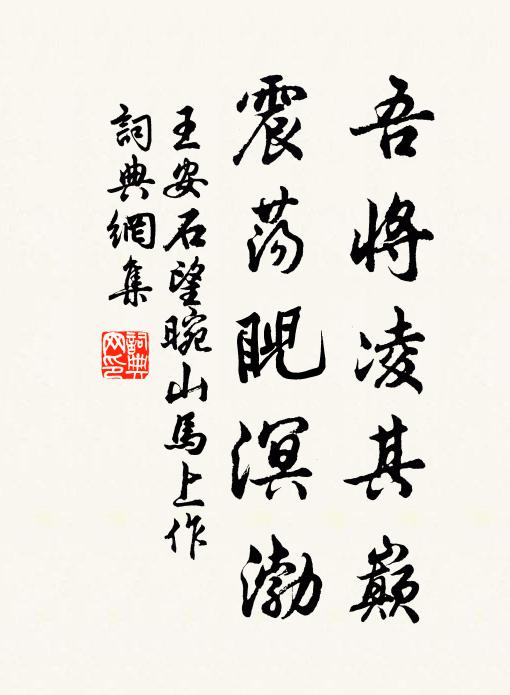 吾將凌其巔
震荡睨溟渤
王安石望晼山馬上作
詞典網集
詞典网印